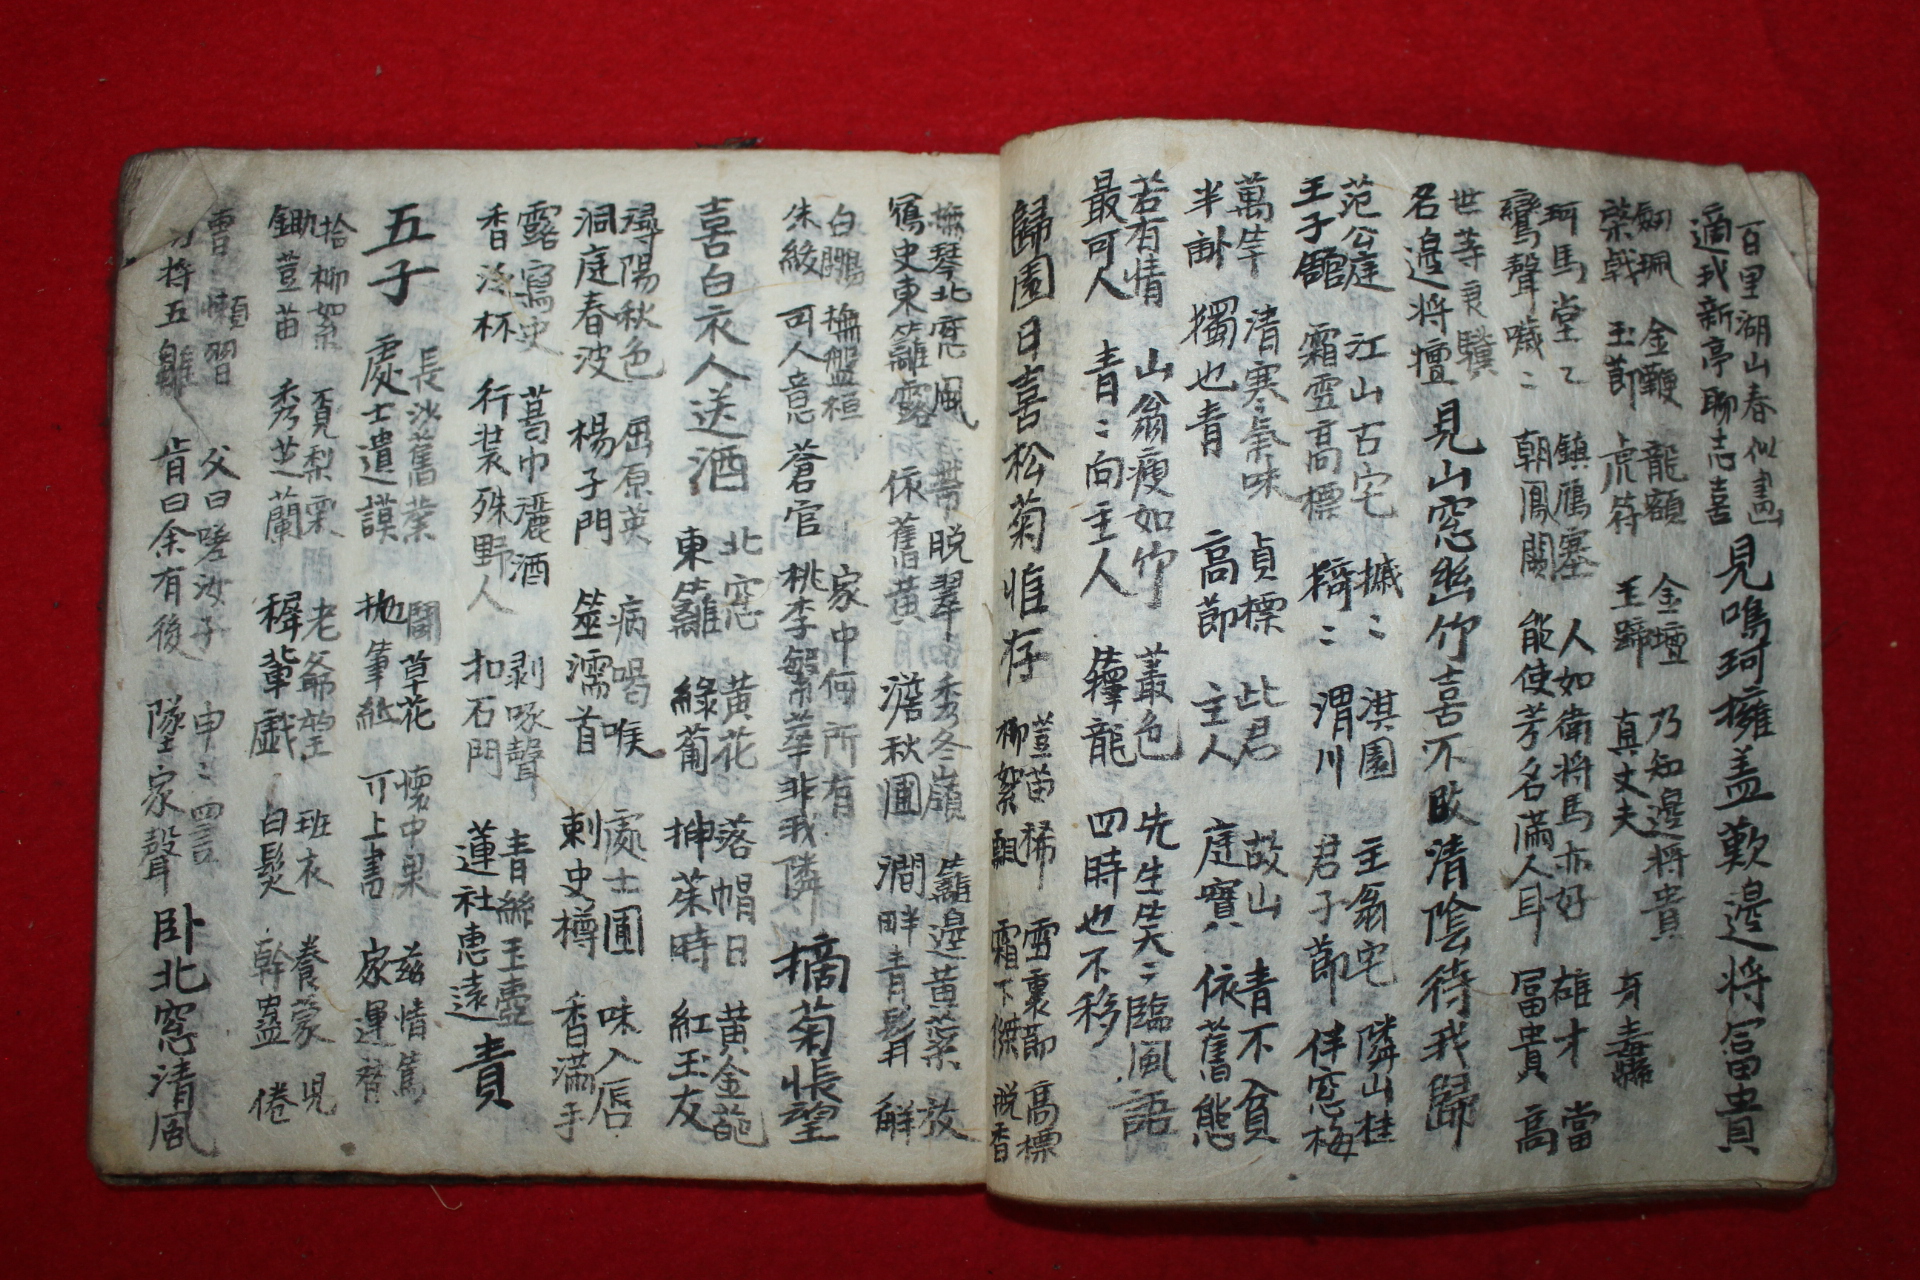 百里湖山春似畵
適我新亭聊志喜
見鳴珂擁盖歎邊将冨貴
釼珮 金鞭 龍額 金壇 乃知邊将貴
棨戟 玉節 虎符 玉蹄 真丈夫 身
珂馬堂〻 鎮鴈塞 人如衛将馬亦好 雄才 當
鸞聲噦〻 朝鳳闕 能使芳名滿人耳 冨貴 高
世等良驥
名邊将壇
見山窓幽竹喜不改清陰待我歸
范公庭 江山古宅 摵〻 淇園 主翁宅 隣山桂
王子館 霜雪高標 㯋〻 渭川 君子節 伴窓梅
萬竿 清寒氣味 貞標 此君 故山 青不貧
半畝 獨也青 高節 主人 庭寶 依舊態
若有情 山翁瘦如竹 叢色 先生笑〻臨風語
最可人 青〻向主人 籜龍 四時也不移
歸園日喜松菊惟存
荳苗稀 雪裏節 高標
柳絮飄 霜下傑 脱香
撫琴北窓風 脱翠 秀冬嶺 籬邊黄蘂 放
史東籬露 依舊黄 澹秋圃 澗畔青 解
白鷴 撫盤桓 家中何所有
朱綬 可人意 蒼官 桃李繁華非我隣
摘菊悵望
喜白衣人送酒
北窓 黄花 落帽日 黄金葩
東籬 綠葡 挿茱時 紅玉友
尋陽秋色 屈原英 病喝喉 處士圃 味入唇
洞庭春波 楊子門 濡首 刺史樽 香滿手
露寫史 葛巾漉酒 剥啄聲 青絲玉壺
香泛杯 行装殊野人 扣石門 蓮社惠遠
責
五子
長沙舊業 鬪草花 懷中果 兹情篤
處士遺謨 抛筆紙 可上書 家運替
拾柳絮 覓梨栗 老爺望 班衣 養蒙 児
鋤荳苗 秀芝蘭 穉輩戯 白髮 幹蠱 倦
曹 懶習 父曰嗟汝子 申〻四言
将五雛 肯曰余有後 墜家聲
卧北窓清風